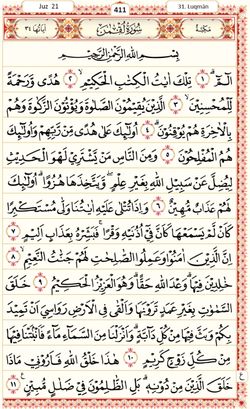 Juz 21
411
31. Luqmân
مكية
سورة لقمن
آياتها ٣٤
بسم الله الرحمن الرحيم
الم ١ تلك ايت الكتب الحكيم ٢ هدى ورحمة
للمحسنين ٣ الذين يقيمون الصلوة ويؤتون الزكوة وهم
بالاخرة هم يوقنون ٤ اولئك على هدى من ربهم واولئك
هم المفلحون ٥ ومن الناس من يشتري لهو الحديث
ليضل عن سبيل الله بغير علم ويتخذها هزوا اولئك
لهم عذاب مهين ٦ واذا تتلى عليه ايتنا ولى مستكبرا
كان لم يسمعها كان في اذنيه وقرا فبشره بعذاب اليم ٧
ان الذين امنوا وعملوا الصلحت لهم جنت النعيم ٨
خلدين فيها وعد الله حقا وهو العزيز الحكيم ٩ خلق
السموت بغير عمد ترونها والقى في الارض رواسي ان تميد
بكم وبث فيها من كل دابة وانزلنا من السماء ماء فانبتنا فيها
من كل زوج كريم ١٠ هذا خلق الله فاروني ماذا
خلق الذين من دونه بل الظلمون في ضلل مبين ١١